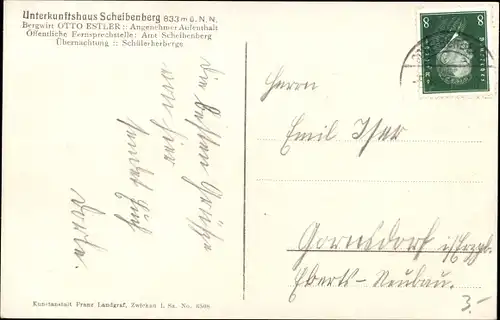 Unterkunftshaus Scheibenberg 833 m ü. N. N.
Bergwirt OTTO ESTLER :: Angenehmer Aufenthalt
Öffentliche Fernsprechstelle: Amt Scheibenberg
Übernachtung :: Schülerherberge
Die besten Grüße
von hier
sendet Euch
Herrn
Emil
Gornsdorf i/Erzgb.
Eberts-Neubau.
3.-
8 8
Kunstanstalt Franz Landgraf, Zwickau i. Sa. No.